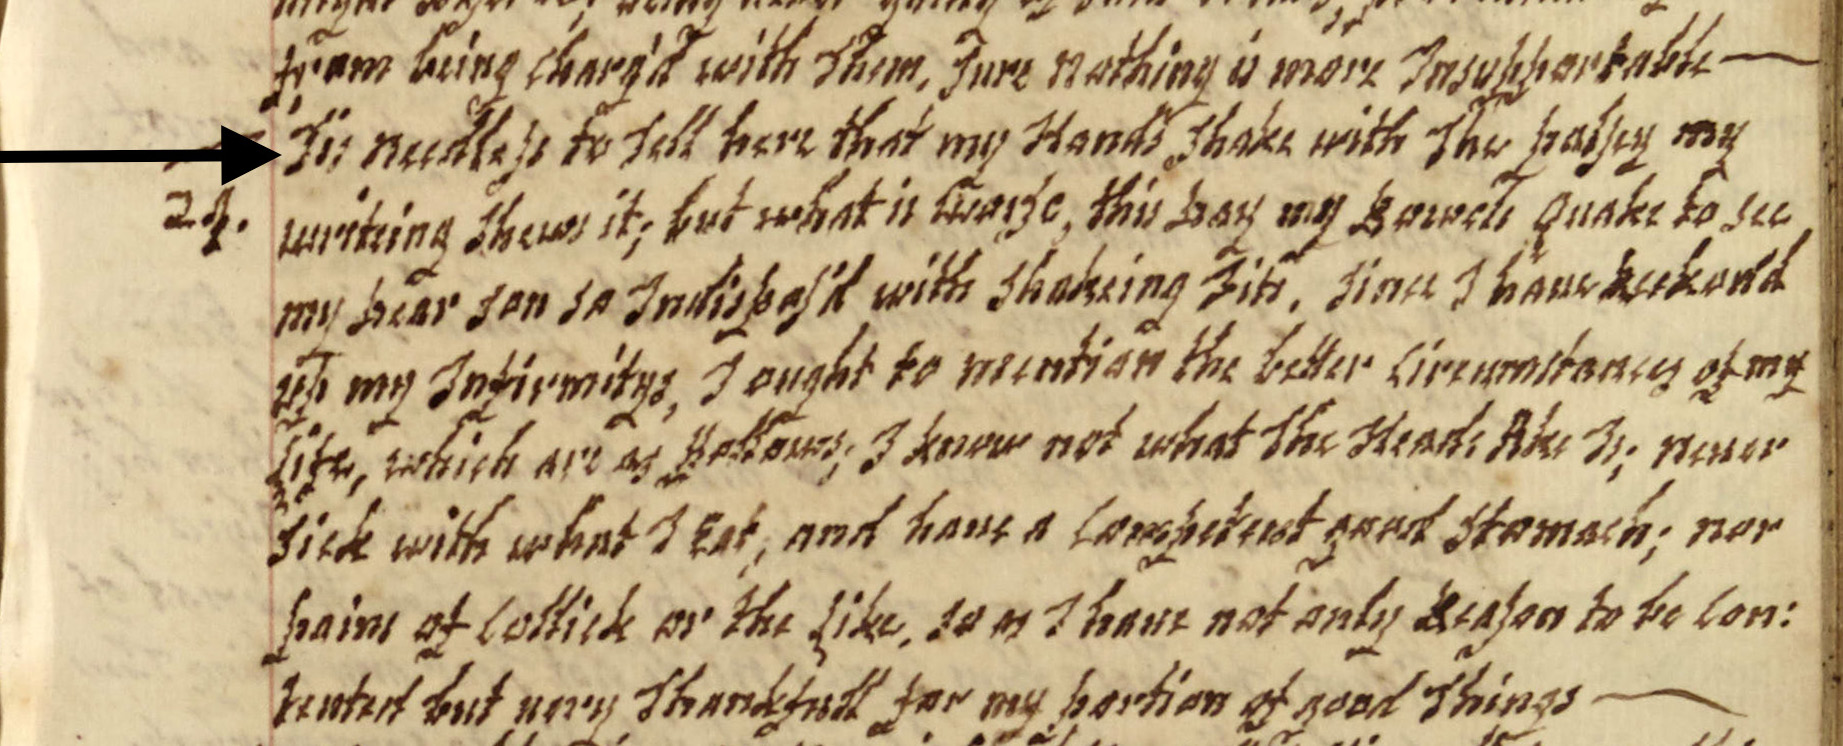 from being Charg'd with Them, Sure Nothing is more Insupportable
Tis needless to Tell here that my Hands Shake with The palsey my
24. writeing Shews it; but what is Worse, this Day my Bowels Quake to see
my Dear Son so Indispos'd with Shakeing Fits, Since I have Reckond
up my Infirmitys, I ought to mention the better Circumstances of my
Life, which are as ffollows; I know not what The Head: Ake Is; never
Sick with what I Eat; and have a Competent good Stomach; nor
pains of Collick or the Like, so as I have not only Reason to be Con:
tented but very Thankfull for my portion of good Things